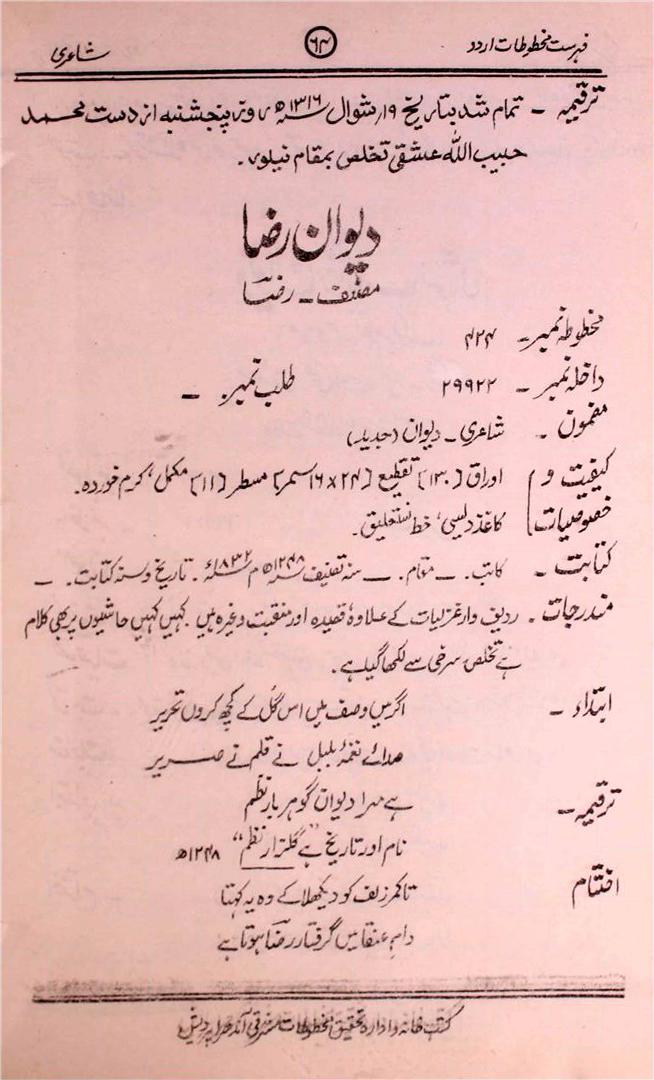 فہرست مخطوطات اردو ۶۴ شاعری
ترقیمہ ۔ تمام شد بتاریخ ۱۹؍ شوال ۱۳۱۶ھ روز پنجشنبہ از دست محمد
حبیب اللہ عشقی تخلص بمقام نیلور۔
دیوان رضا
مصنف ۔ رضا
مخطوطہ نمبر ۔ ۴۲۴
داخلہ نمبر ۔ ۲۹۹۲۲ طلب نمبر ۔ ـــ
مضمون ۔ شاعری ۔ دیوان (جدید)
کیفیت و اوراق [۱۳۰] تقطیع [۲۴ × ۱۶ سمر] مسطر [۱۱] مکمل، کرم خوردہ۔
خصوصیات کاغذ دیسی، خط نستعلیق۔
کتابت ۔ کاتب۔ ـــ مقام۔ ـــ سنہ تصنیف ۱۲۴۸ھ م ۱۸۳۲ء۔ تاریخ و سنہ کتابت۔ ـــ
مندرجات ۔ ردیف وار غزلیات کے علاوہ قصیدہ اور منقبت وغیرہ ہیں۔ کہیں کہیں حاشیوں پر بھی کلام
ہے تخلص سرخی سے لکھا گیا ہے۔
ابتداء ۔ اگر میں وصف میں اس گل کے کچھ کروں تحریر
صدائے نغمۂ بلبل نے قلم نے صریر
ترقیمہ ۔ ہے مرا دیوان گوہر بار نظم
نام اور تاریخ ہے "گلزار نظم" ۱۲۴۸ھ
اختتام تا کمر زلف کو دیکھلا کے وہ یہ کہتا
دام عنقا میں گرفتار رضا ہوتا ہے
کتب خانہ و ادارہ تحقیق مخطوطات مشرقی آندھرا پردیش